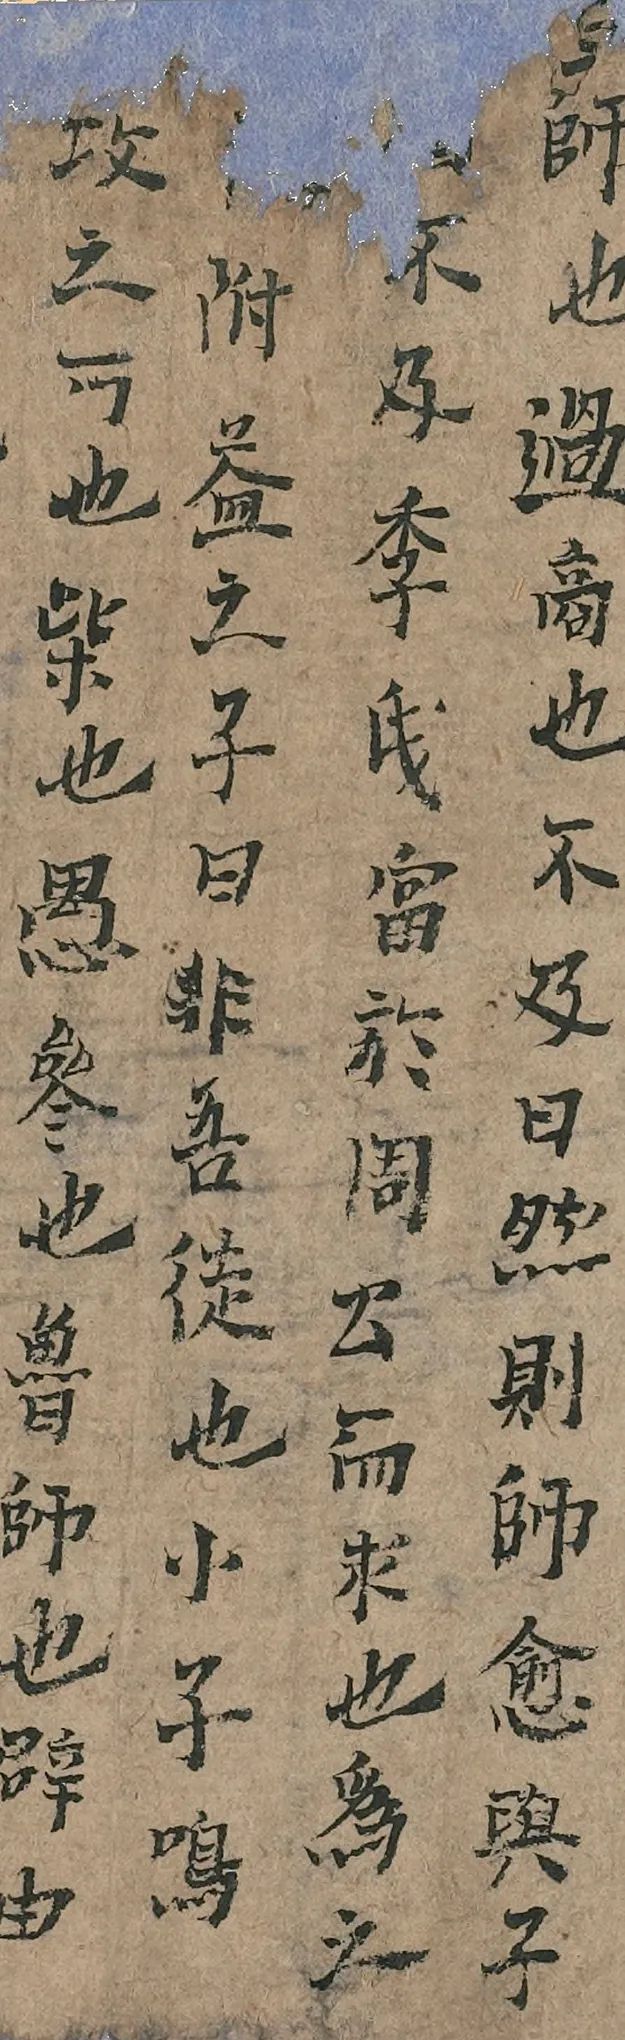 師也過商也不及曰然則師愈與子
不及季氏富於周公而求也為之
附益之子曰非吾徒也小子鳴
攻之可也柴也愚參也魯師也辟由